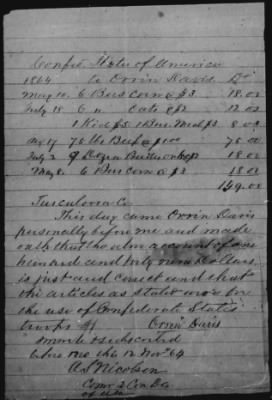 Confed States of America
1864 To Orvin Davis Dr
May 10 6 Bus Corn @ $3 18.00
July 18 6 " oats @ $2 12.00
1 Kid $5 1 Bus Meal $3 8.00
Aug 17 75 lbs Beef @ $1.00 75.00
July 2 9 Dozen Bunts onions 18.00
May 8 6 Bus Corn @ $3 18.00
149.00
Tusculoosa Co
This day came Orvin Davis
personally before me and made
oath that the above account of one
hundred and forty nine Dollars
is just and correct and that
the articles as stated was for
the use of Confederate States
troops Orvin Davis
Sworn to & subscribed
before me this 12 Nov 64
A S Nicolson
Comr